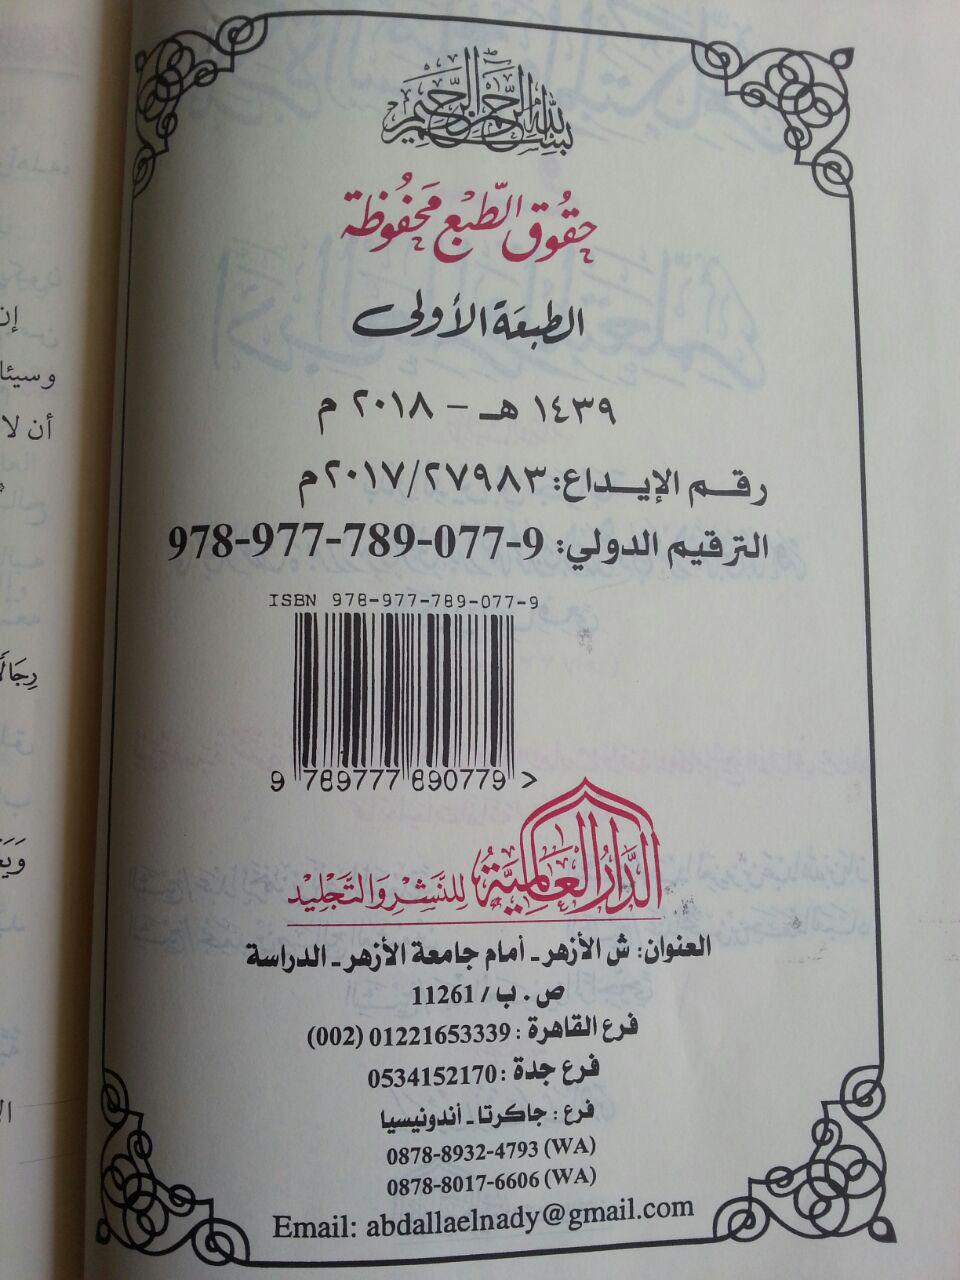 بسم الله الرحمن الرحيم
حقوق الطبع محفوظة
الطبعة الأولى
١٤٣٩ هـ - ٢٠١٨ م
رقم الإيداع: ٢٠١٧/٢٧٩٨٣م
الترقيم الدولي: 978-977-789-077-9
ISBN 978-977-789-077-9
9 789777 890779 >
الدَّارُ العَالَمِيَّةُ لِلنَّشْرِ وَالتَّجْلِيدِ
العنوان: ش الأزهر - أمام جامعة الأزهر - الدراسة
ص . ب / 11261
فرع القاهرة : 01221653339 (002)
فرع جدة : 0534152170
فرع : جاكرتا - أندونيسيا
0878-8932-4793 (WA)
0878-8017-6606 (WA)
Email: abdallaelnady@gmail.com
إن
وسيئا
أن لا